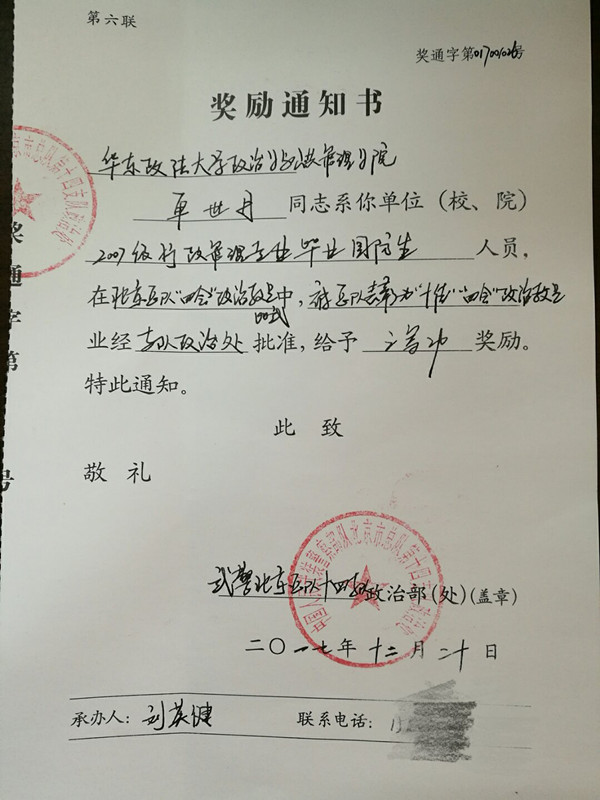 第六联
奖通字第01700026号
奖励通知书
华东政法大学政治学与公共管理学院
同志系你单位（校、院）
2007级行政管理专业毕业国防生 人员，
在北京总队"四会"政治教员比武中，被总队表彰为"十佳""四会"政治教员
业经 支队政治处 批准，给予 三等功 奖励。
特此通知。
此 致
敬 礼
武警北京总队十四支队政治部（处）（盖章）
二〇一七年 十二月 二十日
承办人：刘英健 联系电话：
中国人民武装警察部队北京市总队第十四支队政治处
奖通字第 号